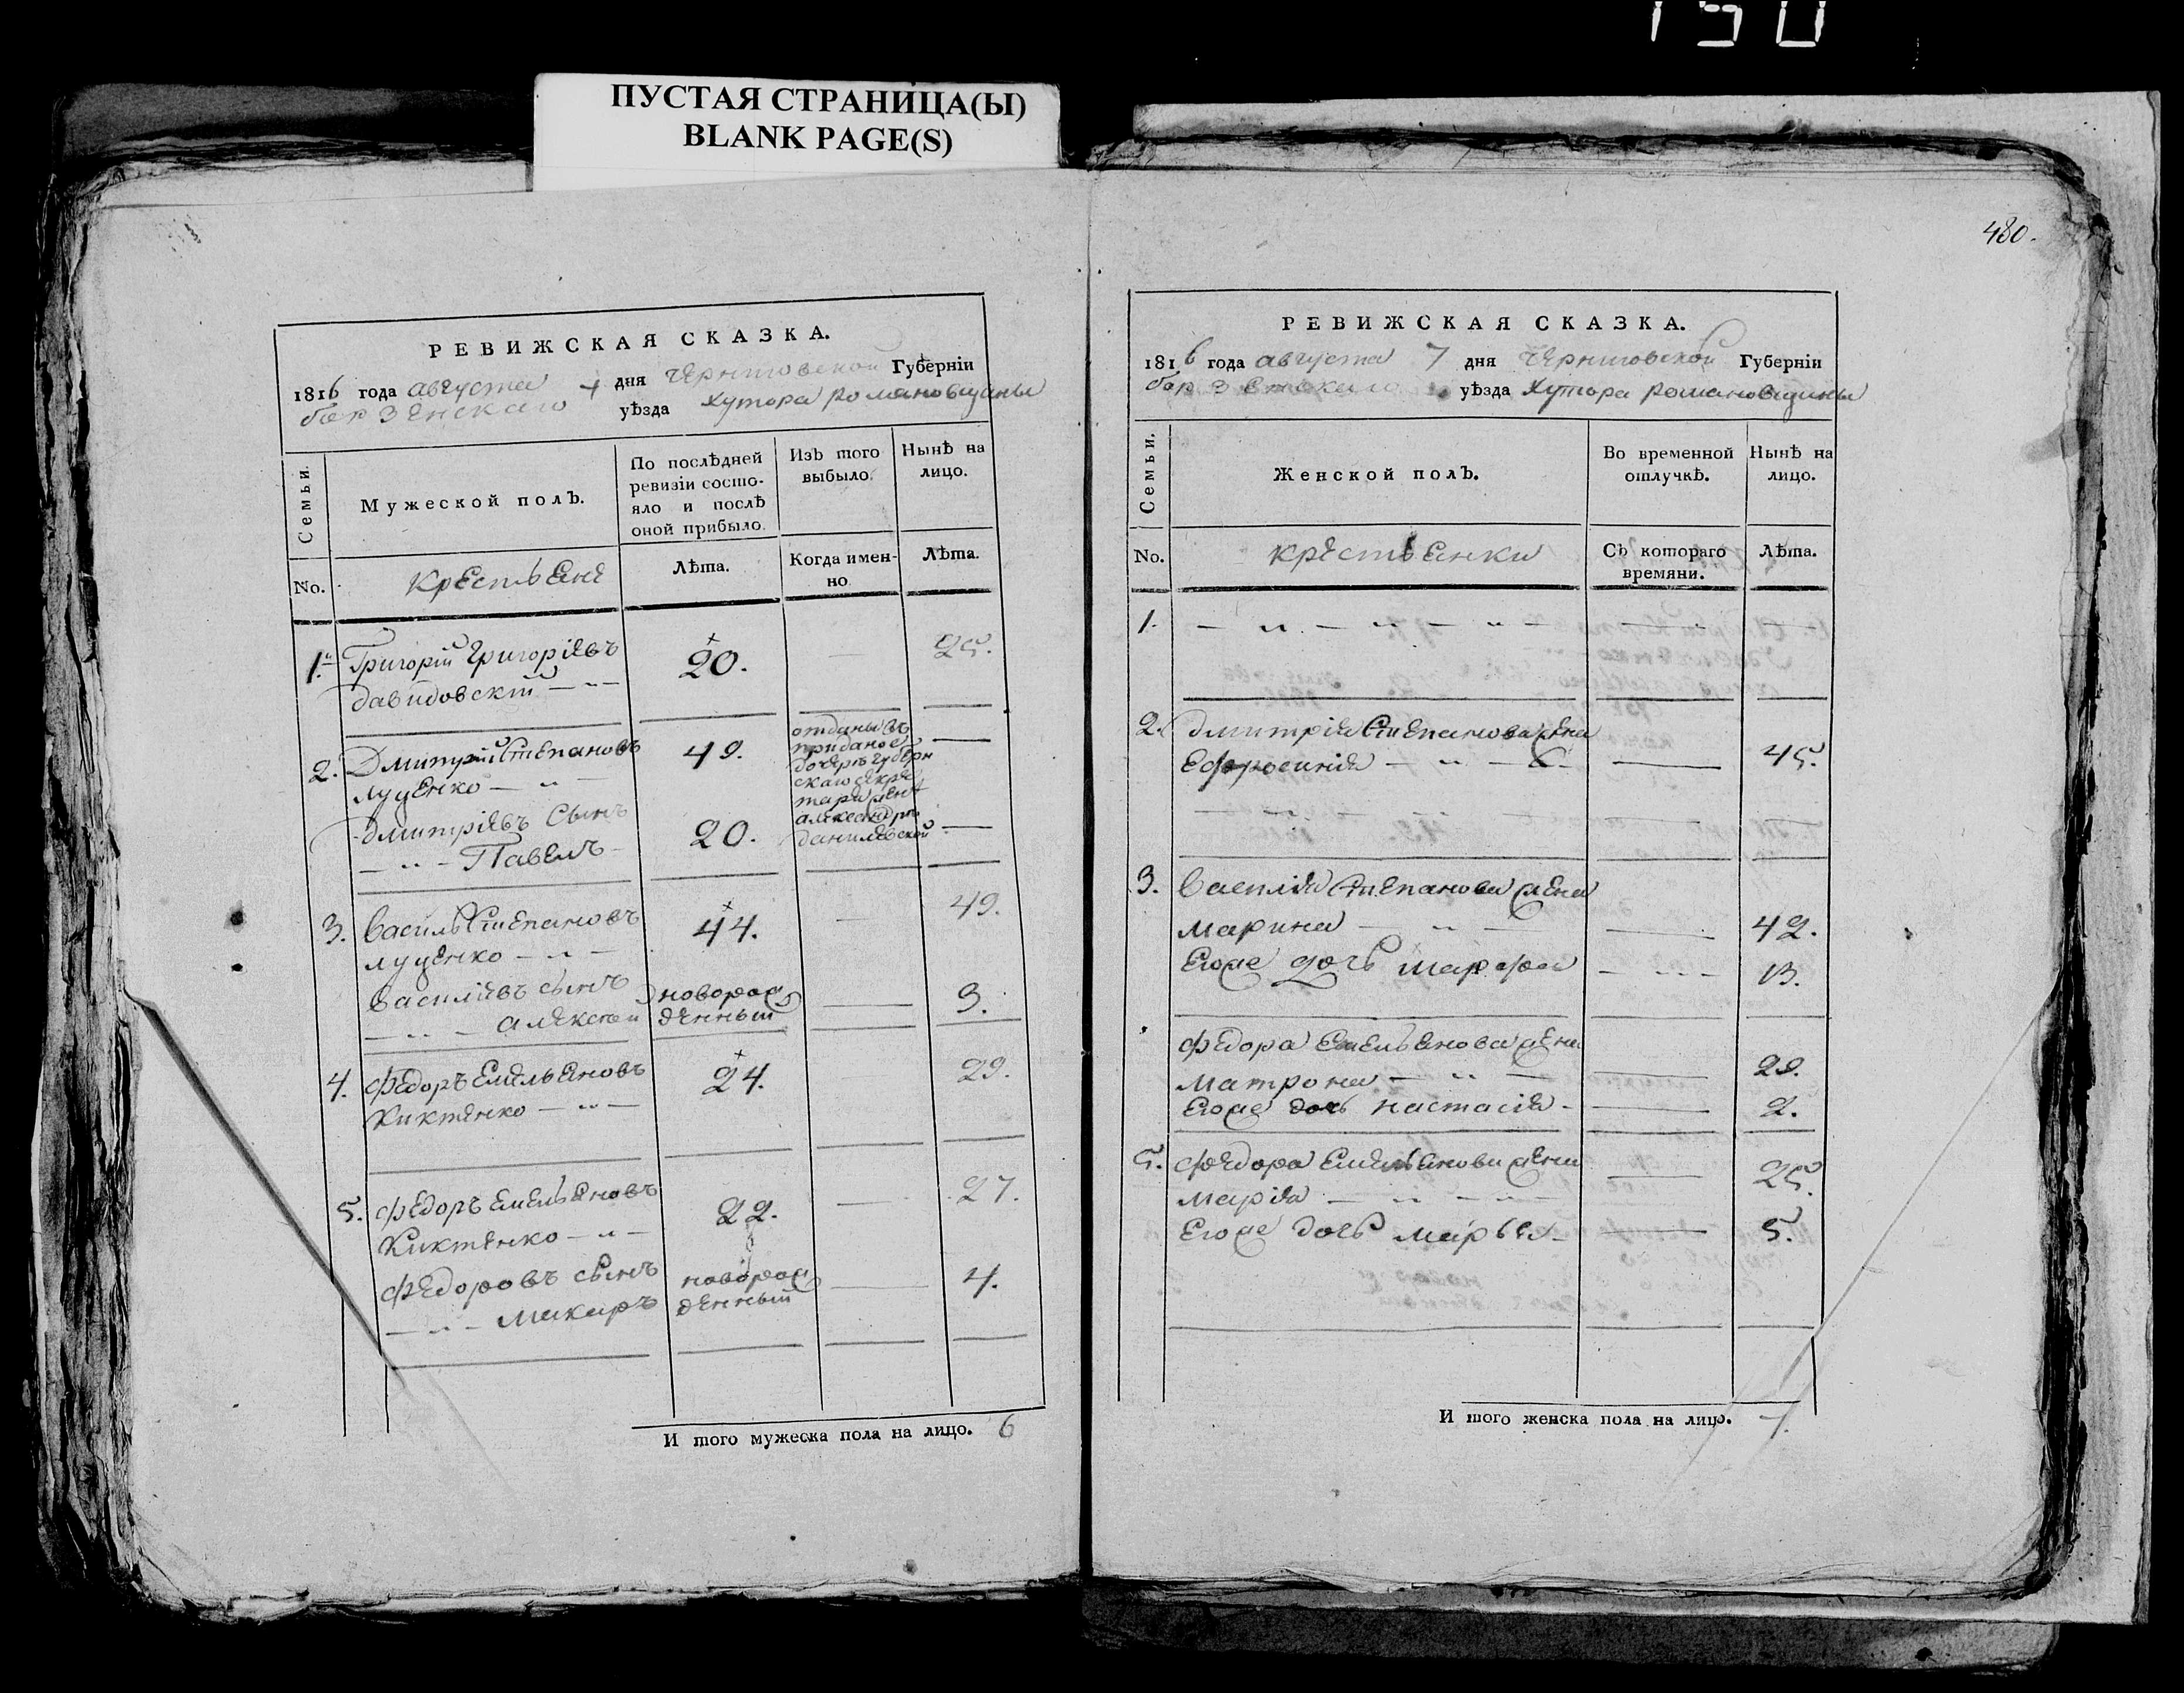 150
ПУСТАЯ СТРАНИЦА(Ы)
BLANK PAGE(S)
РЕВИЖСКАЯ СКАЗКА.
1816 года августа 7 дня Черниговской Губерніи
борзенскаго уѣзда Хутора романовщины
Семьи.
Мужеской полъ.
По послѣдней
ревизіи состо-
яло и послѣ
оной прибыло.
Изъ того
выбыло.
Нынѣ на
лицо.
No.
Крестьяне
Лѣта.
Когда имен-
но.
Лѣта.
1. Григорій Григорьевъ 20. — 25.
давидовскій — „ —
2. Дмитрій Степановъ 49. —
луценко — „
отданы въ
приданое
дочерѣ губерн
скаго секре
таря
александрѣ
данилевской
дмитріевъ Сынъ
— „ — Павелъ 20. —
3. Василь Степановъ 44. — 49.
луценко — „ —
Василіевъ сынъ новорож
— „ — алексѣй денный — 3.
4. Федоръ Емельяновъ 24. 29.
Киктенко — „ —
5. Федоръ Емельяновъ 22. — 27.
Киктенко — „ —
Федоровъ сынъ новорож
— „ — Макаръ денный — 4.
И того мужеска пола на лицо. 6
480.
РЕВИЖСКАЯ СКАЗКА.
1816 года августа 7 дня Черниговской Губерніи
борзенскаго уѣзда Хутора романовщины
Семьи.
Женской полъ.
Во временной
отлучкѣ.
Нынѣ на
лицо.
No.
крестьянки
Съ котораго
времяни.
Лѣта.
1. — „ — „ — „ — — —
2. дмитрія Степанова жена
Ефросинія — „ — — 45.
3. Василія Степанова жена
марина — „ — — 42.
Егоже дочь марфа — 13.
федора Емельянова жена
матрона — „ — — 29.
Егоже дочь настасія — — 2.
5. федора Емельянова жена
марія — „ — — 25.
Егоже дочь марья — — 5.
И того женска пола на лицо. 7.